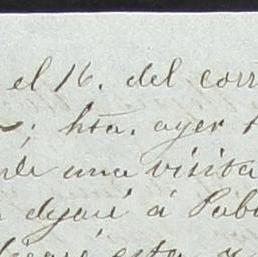 el 16. del corr
; hta. ayer
una visita
dejaré á Pab
esta y